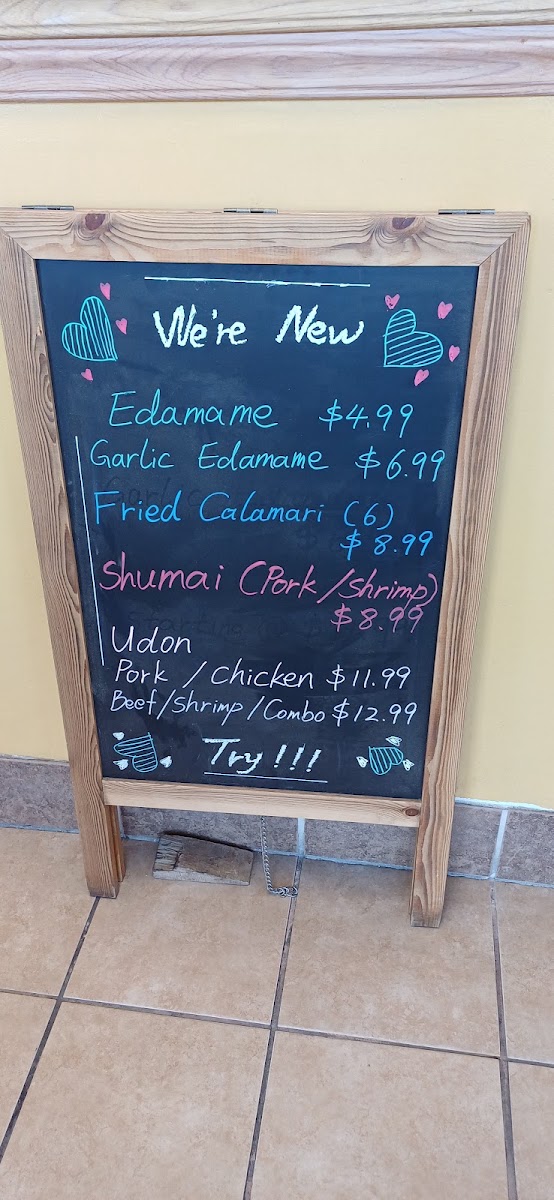 We're New
Edamame $4.99
Garlic Edamame $6.99
Fried Calamari (6)
$8.99
Shumai (Pork/Shrimp)
$8.99
Udon
Pork / Chicken $11.99
Beef/Shrimp/Combo $12.99
Try!!!